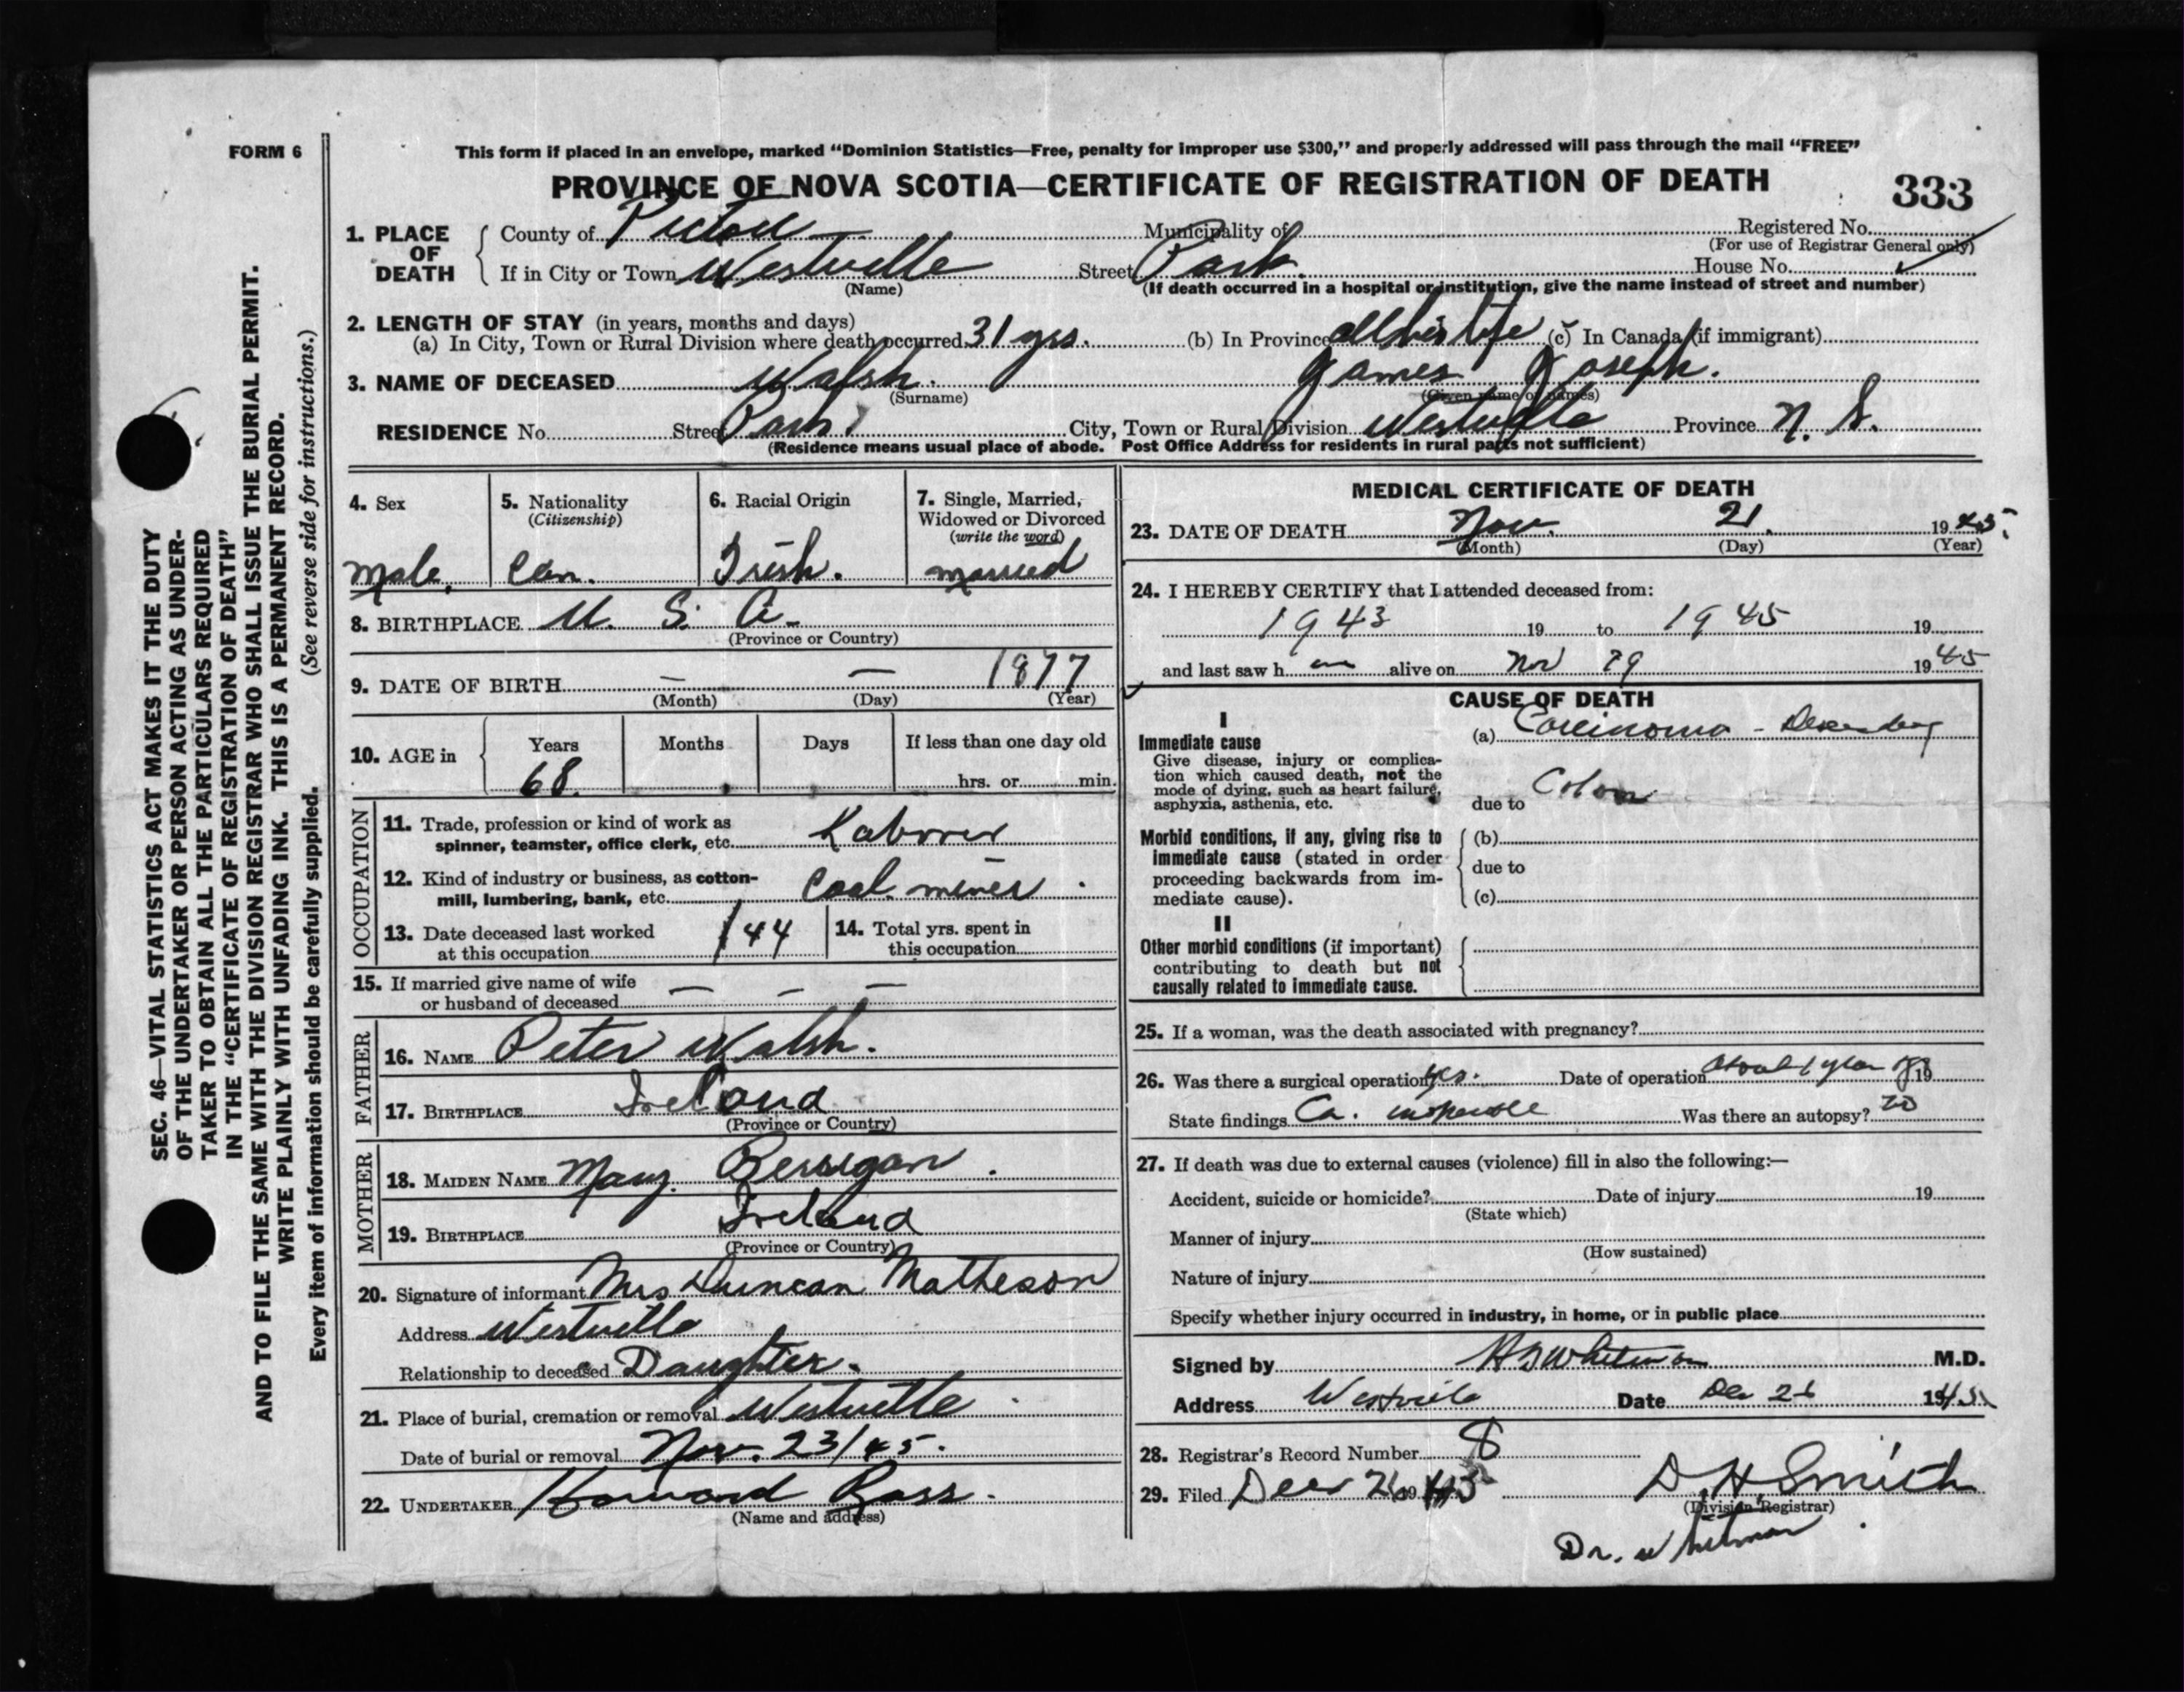 FORM 6
This form if placed in an envelope, marked "Dominion Statistics—Free, penalty for improper use $300," and properly addressed will pass through the mail "FREE"
PROVINCE OF NOVA SCOTIA—CERTIFICATE OF REGISTRATION OF DEATH
333
1. PLACE OF DEATH
County of Pictou Municipality of Registered No.
(For use of Registrar General only)
If in City or Town Westville Street Park. House No.
(Name) (If death occurred in a hospital or institution, give the name instead of street and number)
2. LENGTH OF STAY (in years, months and days)
(a) In City, Town or Rural Division where death occurred 31 yrs. (b) In Province all his life (c) In Canada (if immigrant)
3. NAME OF DECEASED Walsh. James Joseph.
(Surname) (Given name or names)
RESIDENCE No. Street Park. City, Town or Rural Division Westville Province N. S.
(Residence means usual place of abode. Post Office Address for residents in rural parts not sufficient)
4. Sex
Male.
5. Nationality
(Citizenship)
Can.
6. Racial Origin
Irish.
7. Single, Married,
Widowed or Divorced
(write the word)
married
8. BIRTHPLACE U. S. A.
(Province or Country)
9. DATE OF BIRTH — — 1877
(Month) (Day) (Year)
10. AGE in
Years Months Days If less than one day old
68. hrs. or min.
OCCUPATION
11. Trade, profession or kind of work as
spinner, teamster, office clerk, etc. Laborer
12. Kind of industry or business, as cotton-
mill, lumbering, bank, etc. Coal mines.
13. Date deceased last worked
at this occupation /44
14. Total yrs. spent in
this occupation
15. If married give name of wife
or husband of deceased — — —
FATHER
16. NAME Peter Walsh.
17. BIRTHPLACE Ireland
(Province or Country)
MOTHER
18. MAIDEN NAME Mary Berrigan.
19. BIRTHPLACE Ireland
(Province or Country)
20. Signature of informant Mrs Duncan Matheson
Address Westville
Relationship to deceased Daughter.
21. Place of burial, cremation or removal Westville
Date of burial or removal Nov. 23/45.
22. UNDERTAKER Howard Ross.
(Name and address)
MEDICAL CERTIFICATE OF DEATH
23. DATE OF DEATH Nov. 21. 1945.
(Month) (Day) (Year)
24. I HEREBY CERTIFY that I attended deceased from:
1943 19 to 1945 19
and last saw h alive on Nov 1945
CAUSE OF DEATH
I
Immediate cause
Give disease, injury or complica-
tion which caused death, not the
mode of dying, such as heart failure,
asphyxia, asthenia, etc.
(a) Carcinoma -
due to Colon
Morbid conditions, if any, giving rise to
immediate cause (stated in order
proceeding backwards from im-
mediate cause).
(b)
due to
(c)
II
Other morbid conditions (if important)
contributing to death but not
causally related to immediate cause.
25. If a woman, was the death associated with pregnancy?
26. Was there a surgical operation yes. Date of operation about 1 year 19
State findings Ca. inoperable Was there an autopsy? no
27. If death was due to external causes (violence) fill in also the following:—
Accident, suicide or homicide? Date of injury 19
(State which)
Manner of injury
(How sustained)
Nature of injury
Specify whether injury occurred in industry, in home, or in public place
Signed by Whitman M.D.
Address Westville Date Dec 26 1945
28. Registrar's Record Number 8
29. Filed Dec 26 1945 D. H. Smith
(Division Registrar)
Dr. Whitman.
SEC. 46—VITAL STATISTICS ACT MAKES IT THE DUTY
OF THE UNDERTAKER OR PERSON ACTING AS UNDER-
TAKER TO OBTAIN ALL THE PARTICULARS REQUIRED
IN THE "CERTIFICATE OF REGISTRATION OF DEATH"
AND TO FILE THE SAME WITH THE DIVISION REGISTRAR WHO SHALL ISSUE THE BURIAL PERMIT.
WRITE PLAINLY WITH UNFADING INK. THIS IS A PERMANENT RECORD.
Every item of information should be carefully supplied. (See reverse side for instructions.)